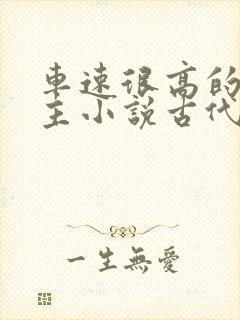 車速很高的
主小說古代
一生無愛